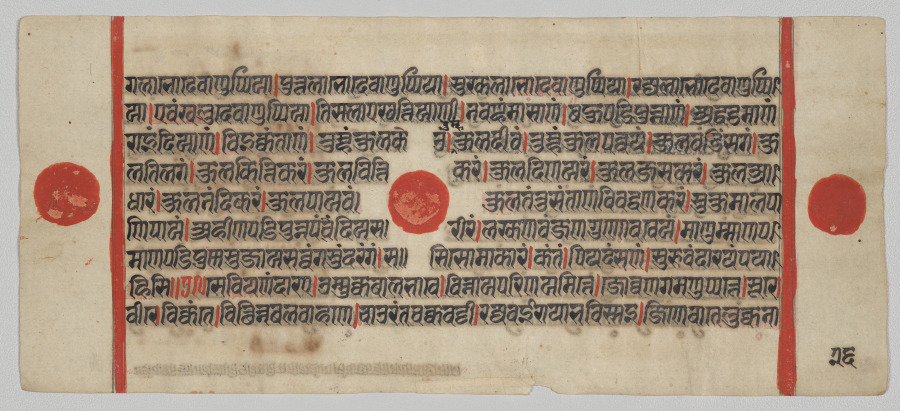 गलाभो देवाणुप्पिया । पुत्तलाभो देवाणुप्पिया । सुरकलाभो देवाणुप्पिया । रज्जलाभो देवाणुप्पि
या । एवं खलु देवाणुप्पिया । तिसला खत्तियाणी । नवण्हं मासाणं । बहुपडिपुन्नाणं । अद्धट्ठमाणं
राइंदियाणं । विइक्कंताणं । तुम्हं कुलके उं । कुलदीवं । तुम्हं कुलपव्वयं । कुलवडिंसयं । कु
लतिलयं । कुलकित्तिकरं । कुलवित्ति करं । कुलदिणयरं । कुलजसकरं । कुलआ
धारं । कुलनंदिकरं । कुलपायवं । कुलतंतुसंताणविवद्धणकरं । सुकुमालपा
णिपायं । अहीणपडिपुन्नपंचिंदियस रीरं । लरकणवंजणगुणोववेयं । माणुम्माणप्प
माणपडिपुन्नसुजायसव्वंगसुंदरंगं । स॥ सिसोमाकारं । कंतं । पियदंसणं । सुरुवं दारयं पया
हिसि ॥ से वि य णं दारए । उम्मुक्कबालभावे । विन्नायपरिणयमित्ते । जोव्वणगमणुप्पत्ते । सूरे
वीरे विक्कंते । विछिन्नबलवाहणे । चाउरंतचक्कवट्टी । रज्जवई राया भविस्सइ । जिणे वा तेलुक्कना